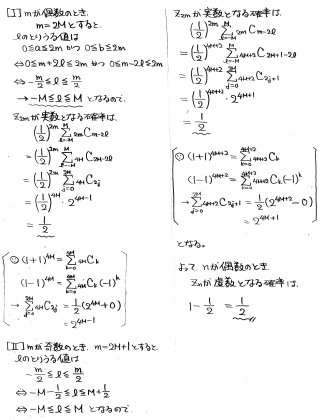 [I] mが偶数のとき
m=2Mとすると.
lのとりうる値は
0≦a≦2m かつ 0≦b≦2m
⇔0≦m+2l≦2m かつ 0≦m-2l≦2m
⇔ -m/2≦l≦m/2
→ -M≦l≦M となるので.
Z2mが実数となる確率は.
(1/2)^2m Σ[l=-M→M] 2mCm-2l
= (1/2)^2m Σ[l=-M→M] 4MC2M-2l
= (1/2)^2m Σ[j=0→2M] 4MC2j
= (1/2)^4M・2^4M-1
= 1/2
∵ (1+1)^4M = Σ[k=0→4M] 4MCk
(1-1)^4M = Σ[k=0→4M] 4MCk(-1)^k
→ Σ[j=0→2M] 4MC2j = 1/2(2^4M+0)
= 2^4M-1
[II] mが奇数のとき. m=2M+1とすると
lのとりうる値は
-m/2≦l≦m/2
⇔ -M-1/2≦l≦M+1/2
⇔ -M≦l≦M となるので
Z2mが実数となる確率は
(1/2)^2m Σ[l=-M→M] 2mCm-2l
= (1/2)^4M+2 Σ[l=-M→M] 4M+2C2M+1-2l
= (1/2)^4M+2 Σ[j=0→2M] 4M+2C2j+1
= (1/2)^4M+2・2^4M+1
= 1/2
∵ (1+1)^4M+2 = Σ[k=0→4M+2] 4M+2Ck
(1-1)^4M+2 = Σ[k=0→4M+2] 4M+2Ck(-1)^k
→ Σ[j=0→2M] 4M+2C2j+1 = 1/2(2^4M+2-0)
= 2^4M+1
となる。
よって nが偶数のとき
Znが虚数となる確率は.
1-1/2 = 1/2